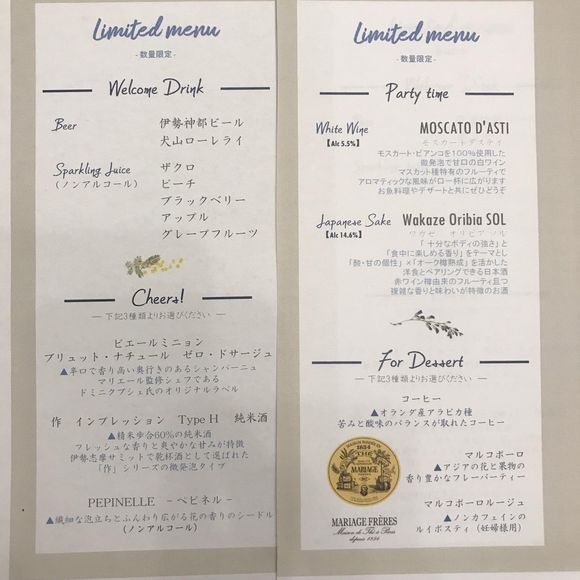 Limited menu
- 数量限定 -
Welcome Drink
Beer
伊勢神都ビール
犬山ローレライ
Sparkling Juice
（ノンアルコール）
ザクロ
ピーチ
ブラックベリー
アップル
グレープフルーツ
Cheers!
― 下記3種類よりお選びください ―
ピエールミニョン
ブリュット・ナチュール　ゼロ・ドサージュ
▲辛口で香り高い奥行きのあるシャンパーニュ
マリエール監修シェフである
ドミニクブシェ氏のオリジナルラベル
作　インプレッション　Type H　純米酒
▲精米歩合60%の純米酒
フレッシュな香りと爽やかな甘みが特徴
伊勢志摩サミットで乾杯酒として選ばれた
「作」シリーズの微発泡タイプ
PEPINELLE －ペピネル－
▲繊細な泡立ちとふんわり広がる花の香りのシードル
（ノンアルコール）
Limited menu
- 数量限定 -
Party time
White Wine
【Alc 5.5%】
MOSCATO D'ASTI
モスカートダスティ
モスカート・ビアンコを100%使用した
微発泡で甘口の白ワイン
マスカット種特有のフルーティで
アロマティックな風味が口一杯に広がります
お魚料理やデザートと共にぜひどうぞ
Japanese Sake
【Alc 14.6%】
Wakaze Oribia SOL
ワカゼ　オリビア　ソル
「十分なボディの強さ」と
「食中に楽しめる香り」をテーマとし
「酸・甘の個性」×「オーク樽熟成」を活かした
洋食とペアリングできる日本酒
赤ワイン樽由来のフルーティ且つ
複雑な香りと味わいが特徴のお酒
For Dessert
― 下記3種類よりお選びください ―
コーヒー
▲オランダ産アラビカ種
苦みと酸味のバランスが取れたコーヒー
マルコポーロ
▲アジアの花と果物の
香り豊かなフレーバーティー
マルコポーロルージュ
▲ノンカフェインの
ルイボスティ（妊婦様用）
1854
THE
MARIAGE
MARIAGE FRÈRES
Maison de Thé à Paris
depuis 1854